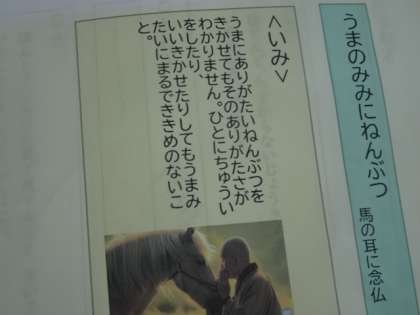 うまのみみにねんぶつ 馬の耳に念仏
<いみ>
うまにありがたいねんぶつを
きかせてもそのありがたさが
わかりません。ひとにちゅうい
をしたり、
いいきかせたりしてもうまみ
たいにまるできききめのないこ
と。